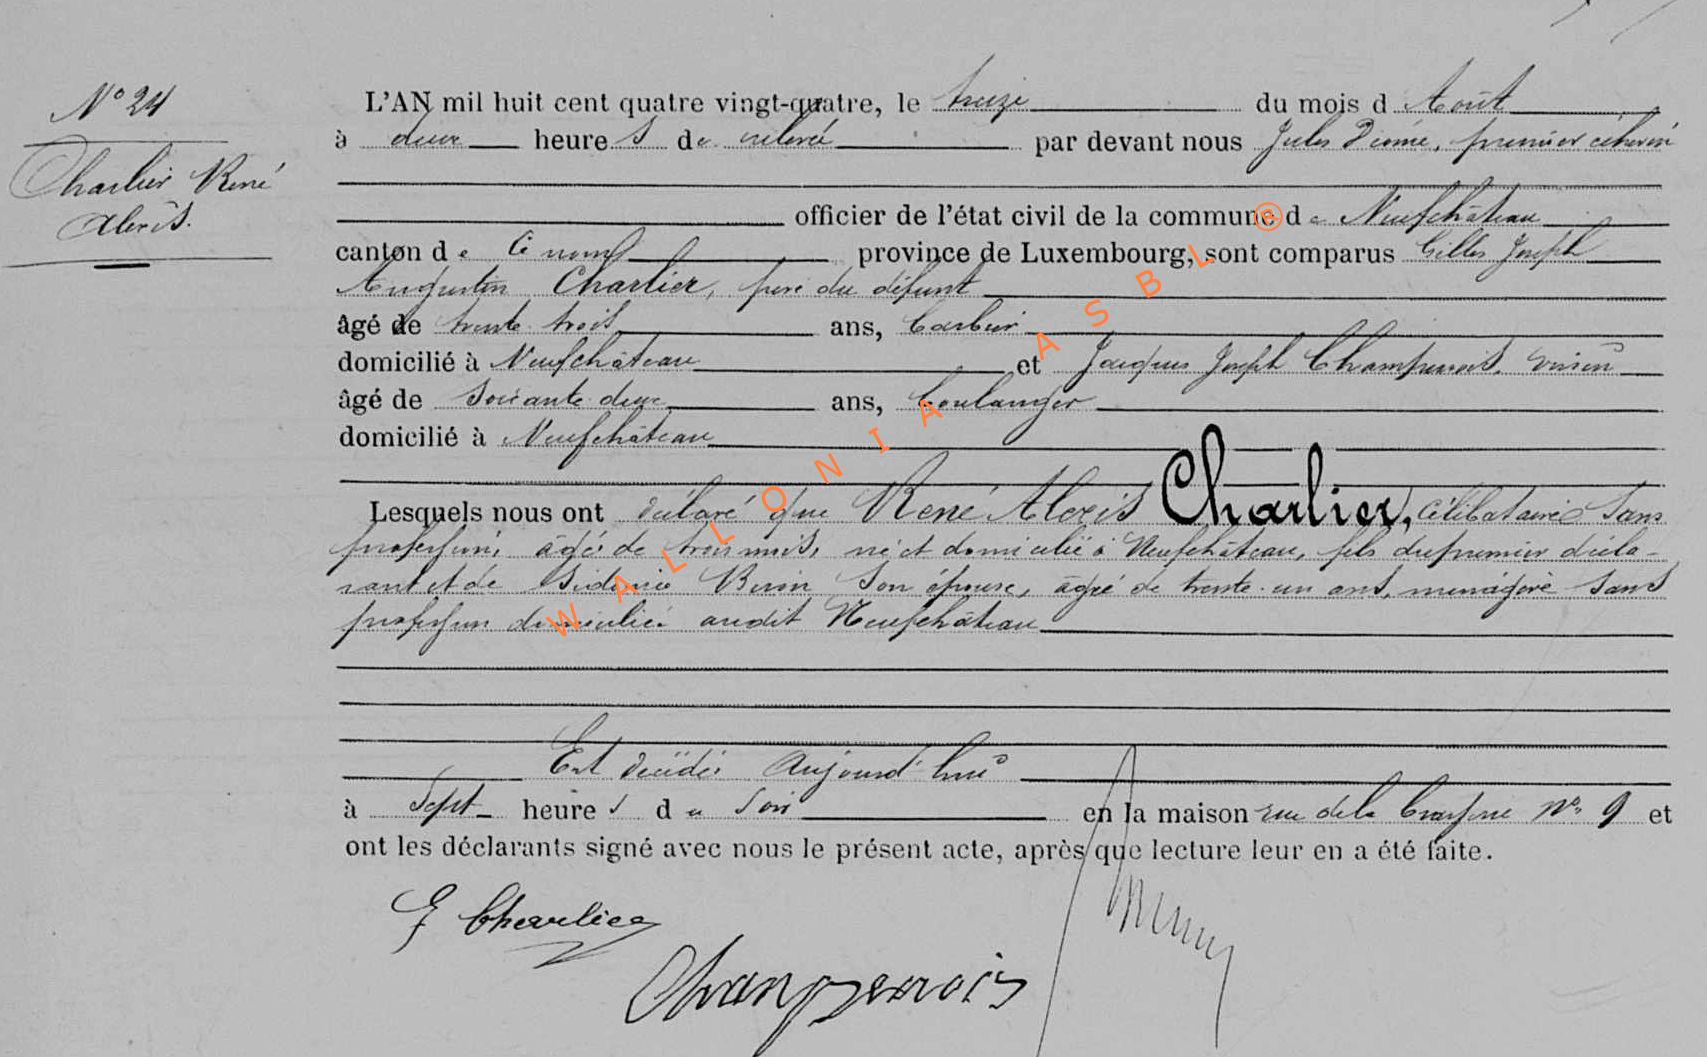 N° 24
Charlier René
Alexis.
L'AN mil huit cent quatre vingt-quatre, le treize du mois d Août
à deux heure s de relevé par devant nous Jules premier échevin
officier de l'état civil de la commune de Neufchâteau
canton de ce nom province de Luxembourg, sont comparus Gilles Joseph
Augustin Charlier, père du défunt
âgé de trente trois ans,
domicilié à Neufchâteau et Jacques Joseph Champenois, voisin
âgé de soixante deux ans, boulanger
domicilié à Neufchâteau
Lesquels nous ont déclaré que René Alexis Charlier, célibataire sans
profession, âgé de trois mois, né et domicilié à Neufchâteau, fils du premier décla-
rant et de Sidonie son épouse, âgée de trente-un ans, ménagère sans
profession domiciliée audit Neufchâteau
Est décédé aujourd'hui
à sept heure s du soir en la maison rue de la N° 9 et
ont les déclarants signé avec nous le présent acte, après que lecture leur en a été faite.
G Charlier
Champenois
WALLONIA ASBL ®